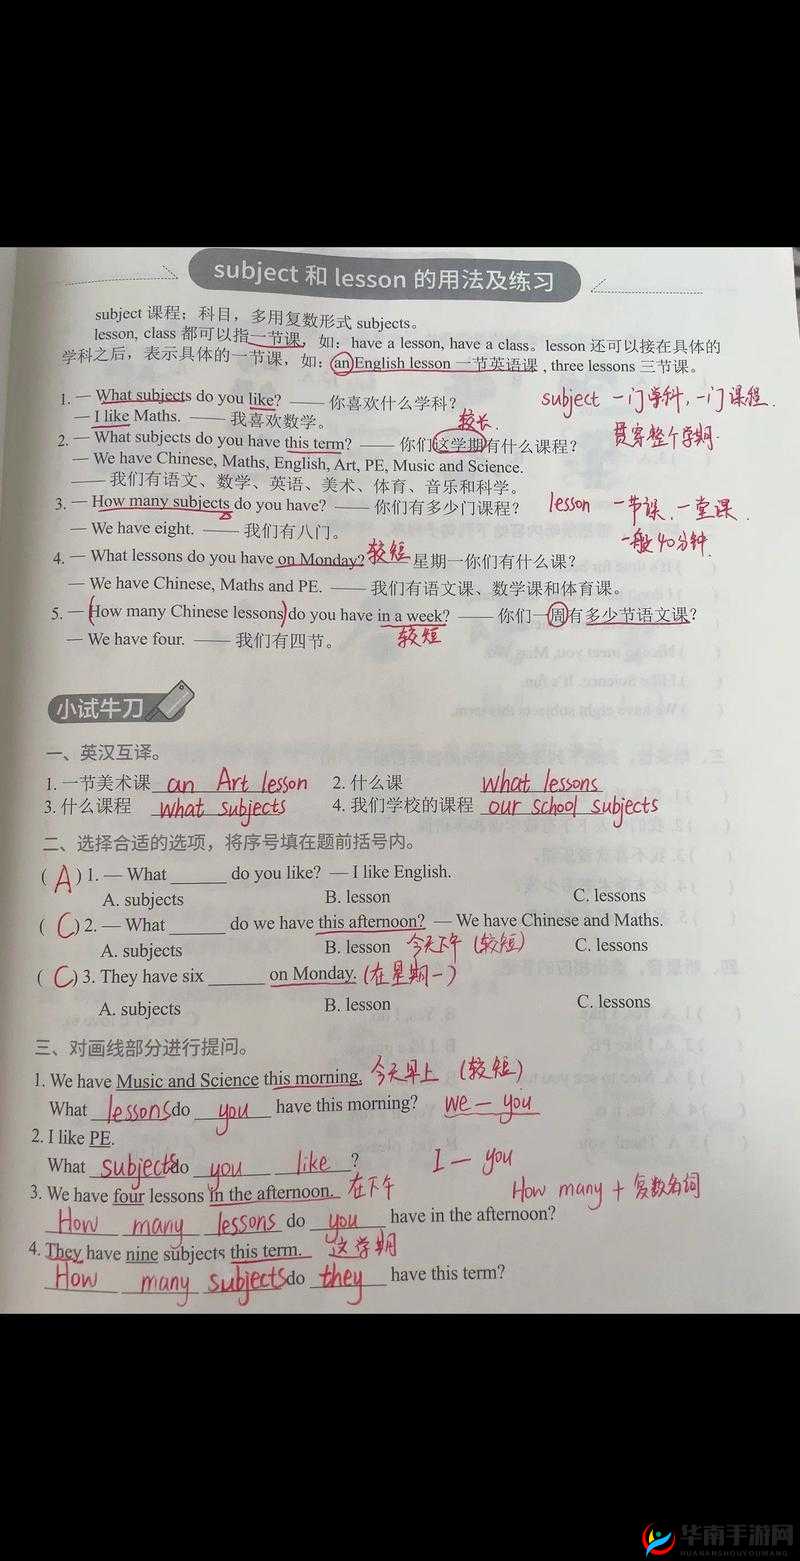 subject 和 lesson 的用法及练习
subject 课程；科目，多用复数形式 subjects。
lesson, class 都可以指一节课，如：have a lesson, have a class。lesson 还可以接在具体的
学科之后，表示具体的一节课，如：an English lesson 一节英语课 , three lessons 三节课。
1. — What subjects do you like? —— 你喜欢什么学科？
subject 一门学科，一门课程.
— I like Maths. —— 我喜欢数学。
较长.
贯穿整个学期.
2. — What subjects do you have this term? —— 你们这学期有什么课程？
— We have Chinese, Maths, English, Art, PE, Music and Science.
—— 我们有语文、数学、英语、美术、体育、音乐和科学。
3. — How many subjects do you have? —— 你们有多少门课程？
lesson 一节课、一堂课.
— We have eight. —— 我们有八门。
一般40分钟.
4. — What lessons do you have on Monday? 较短 星期一你们有什么课？
— We have Chinese, Maths and PE. —— 我们有语文课、数学课和体育课。
5. — (How many Chinese lessons) do you have in a week? —— 你们一周有多少节语文课？
— We have four. —— 我们有四节。
较短
小试牛刀
一、英汉互译。
1. 一节美术课 an Art lesson 2. 什么课 what lessons
3. 什么课程 what subjects 4. 我们学校的课程 our school subjects
二、选择合适的选项，将序号填在题前括号内。
( A ) 1. — What ______ do you like? — I like English.
A. subjects B. lesson C. lessons
( C ) 2. — What ______ do we have this afternoon? — We have Chinese and Maths.
A. subjects B. lesson 今天下午 (较短) C. lessons
( C ) 3. They have six ______ on Monday. (在星期一)
A. subjects B. lesson C. lessons
三、对画线部分进行提问。
1. We have Music and Science this morning. 今天早上 (较短)
What lessons do you have this morning? we — you
2. I like PE.
What subjects do you like ? I — you
3. We have four lessons in the afternoon. 在下午 How many + 复数名词
How many lessons do you have in the afternoon?
4. They have nine subjects this term. 这学期
How many subjects do they have this term?
华南手游网
HUANANSHOUYOUWANG